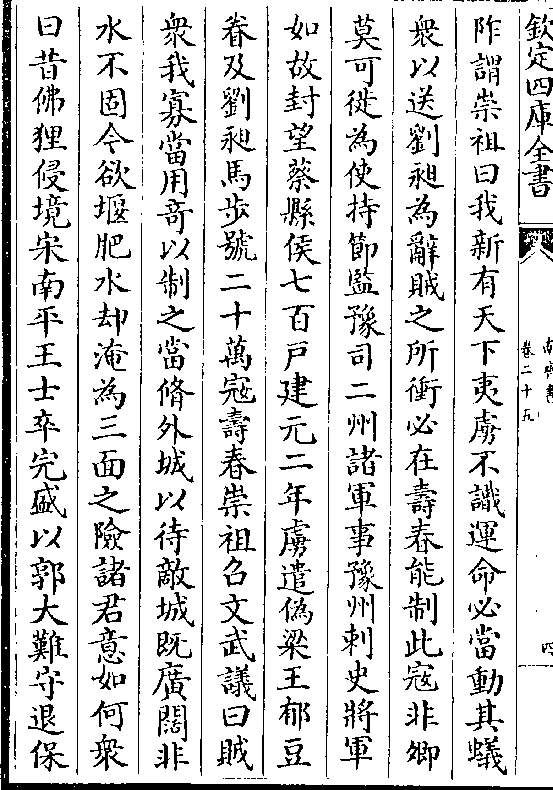 欽定四庫全書
南齊書
卷二十五
四
阼謂崇祖曰我新有天下夷虜不識運命必當動其蟻
衆以送劉昶為辭賊之所衝必在壽春能制此寇非卿
莫可徙為使持節監豫司二州諸軍事豫州刺史將軍
如故封望蔡縣侯七百戶建元二年虜遣偽梁王郁豆
眷及劉昶馬步號二十萬寇壽春崇祖召文武議曰賊
衆我寡當用奇以制之當脩外城以待敵城既廣闊非
水不固今欲堰肥水却淹為三面之險諸君意如何衆
曰昔佛狸侵境宋南平王士卒完盛以郭大難守退保